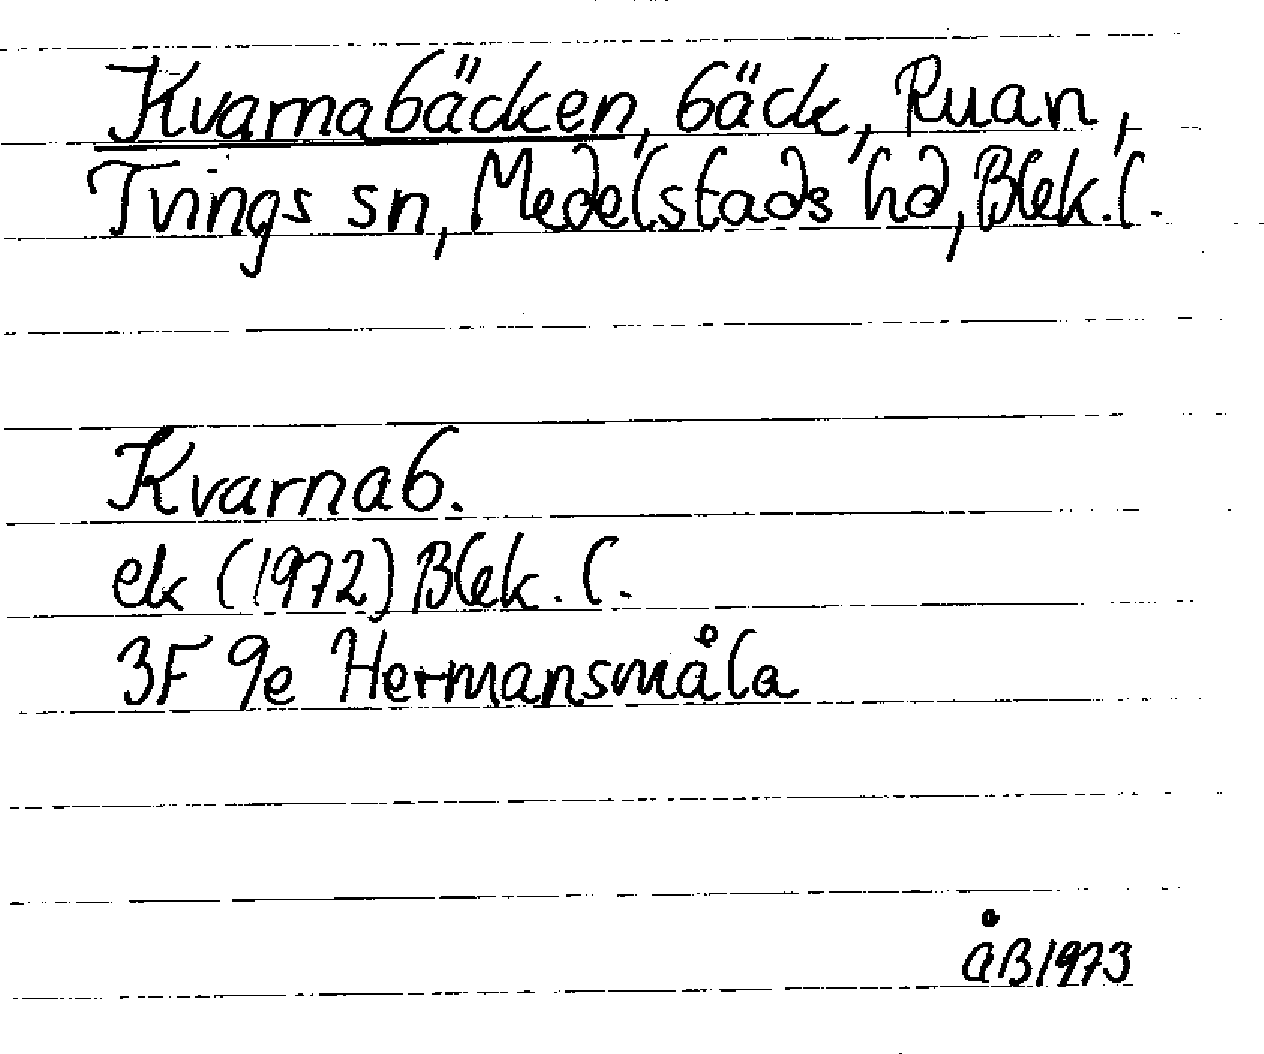 Kvarnabäcken, bäck, Ruan,
Tvings sn, Medelstads hd, Blek. l.
Kvarnab.
ek (1972) Blek. l.
3F 9e Hermansmåla
åB 1973